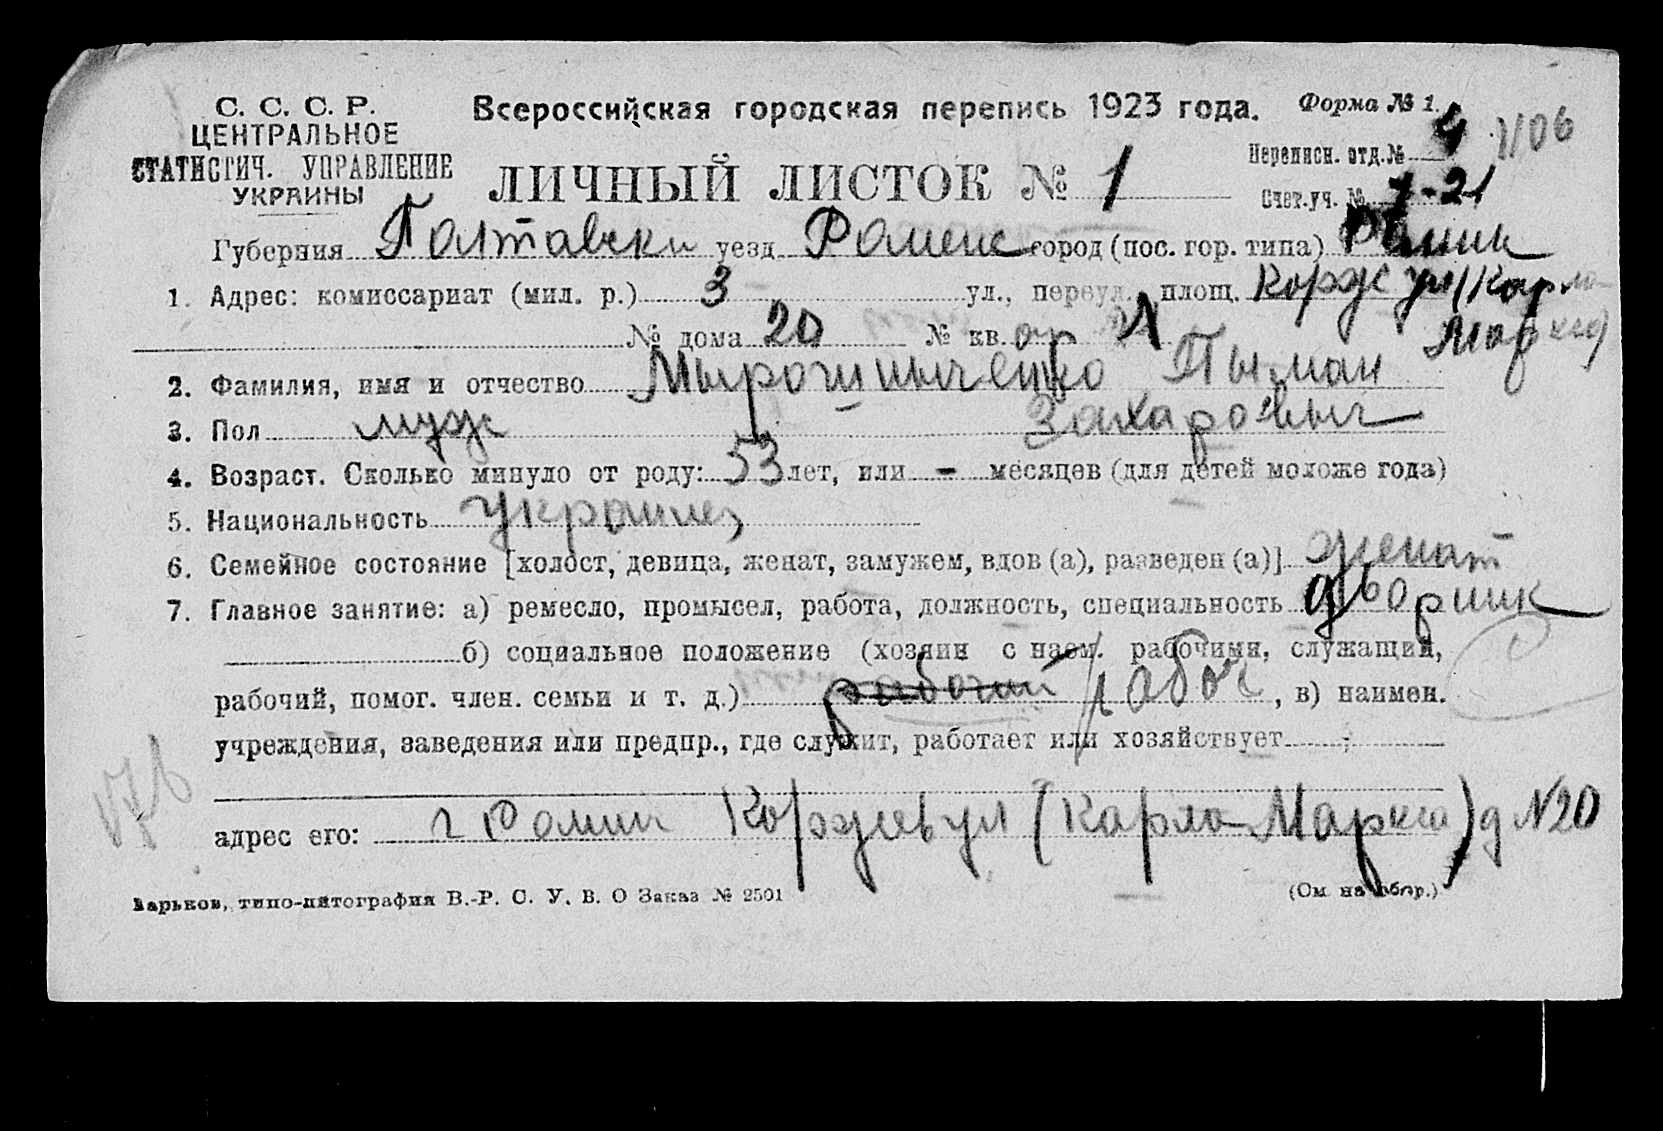 С. С. С. Р.
ЦЕНТРАЛЬНОЕ
СТАТИСТИЧ. УПРАВЛЕНИЕ
УКРАИНЫ
Всероссийская городская перепись 1923 года. Форма № 1.
1106
Переписн. отд.№ 4
ЛИЧНЫЙ ЛИСТОК № 1
Счет.уч. № 7-21
Губерния Полтавски уезд Роменс город (пос. гор. типа) Ромни
1. Адрес: комиссариат (мил. р.) 3 ул., переул., площ. Корж ул (Карла
Маркса)
№ дома 20 № кв. 1
2. Фамилия, имя и отчество Мырошныченко Пыман
Захаровыч
3. Пол муж
4. Возраст. Сколько минуло от роду: 53 лет, или - месяцев (для детей моложе года)
5. Национальность Украинец
6. Семейное состояние [холост, девица, женат, замужем, вдов (а), разведен (а)] женат
7. Главное занятие: а) ремесло, промысел, работа, должность, специальность дворник
б) социальное положение (хозяин с наем. рабочими, служащий,
рабочий, помог. член. семьи и т. д.) рабочий рабоч, в) наимен.
учреждения, заведения или предпр., где служит, работает или хозяйствует
адрес его: г Ромни Коржев ул (Карла Маркса) д №20
176
Харьков, типо-литография В.-Р. С. У. В. О Заказ № 2501
(См. на обор.)